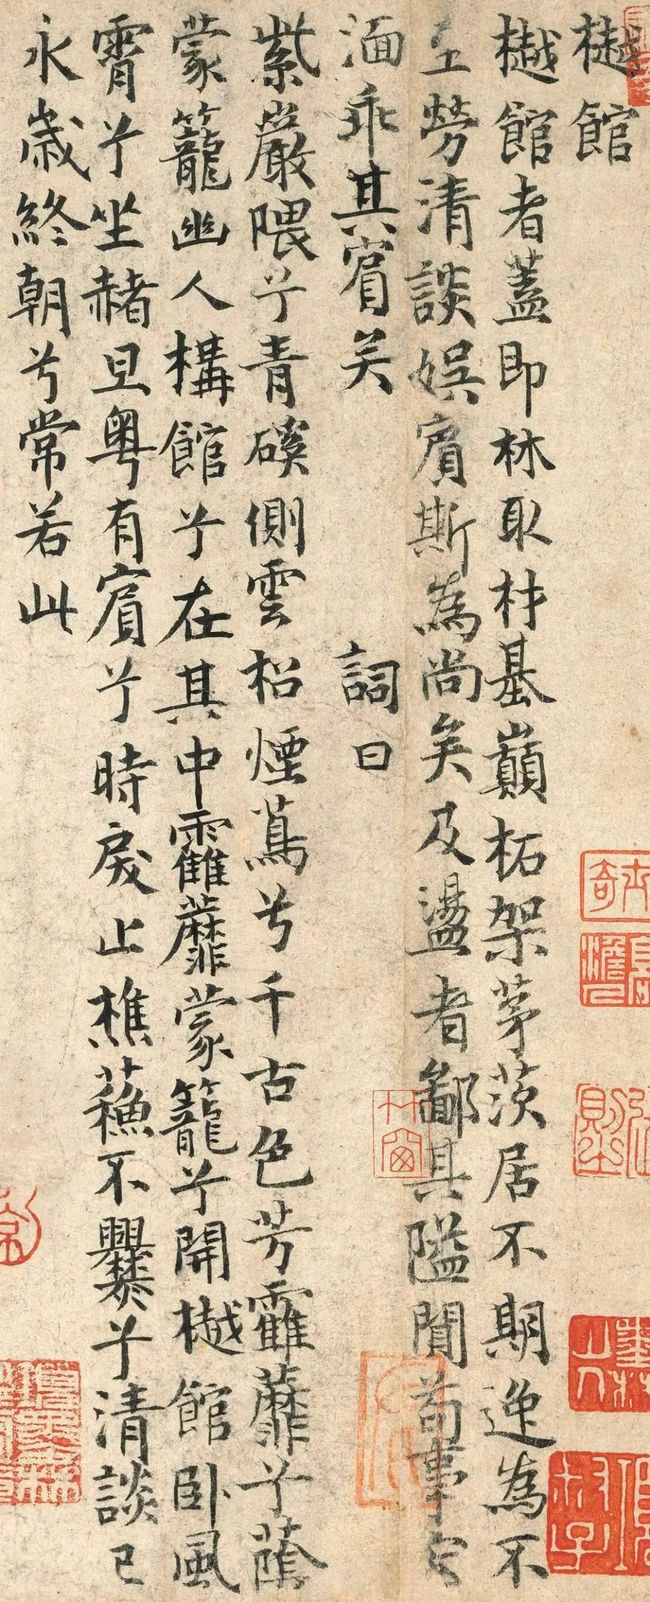 樾館
樾館者蓋即林取材基巔柘架茅茨居不期逸為不
至勞清談娛賓斯為尚矣及盪者鄙其隘閴苟事宏
湎乖其賓矣　詞曰
紫巖隈兮青磎側雲松煙蔦兮千古色芳靃蘼兮蔭
蒙籠幽人構館兮在其中靃蘼蒙籠兮開樾館卧風
霄兮坐赮旦粵有賓兮時戾止樵蘓不爨兮清談已
永歲終朝兮常若此